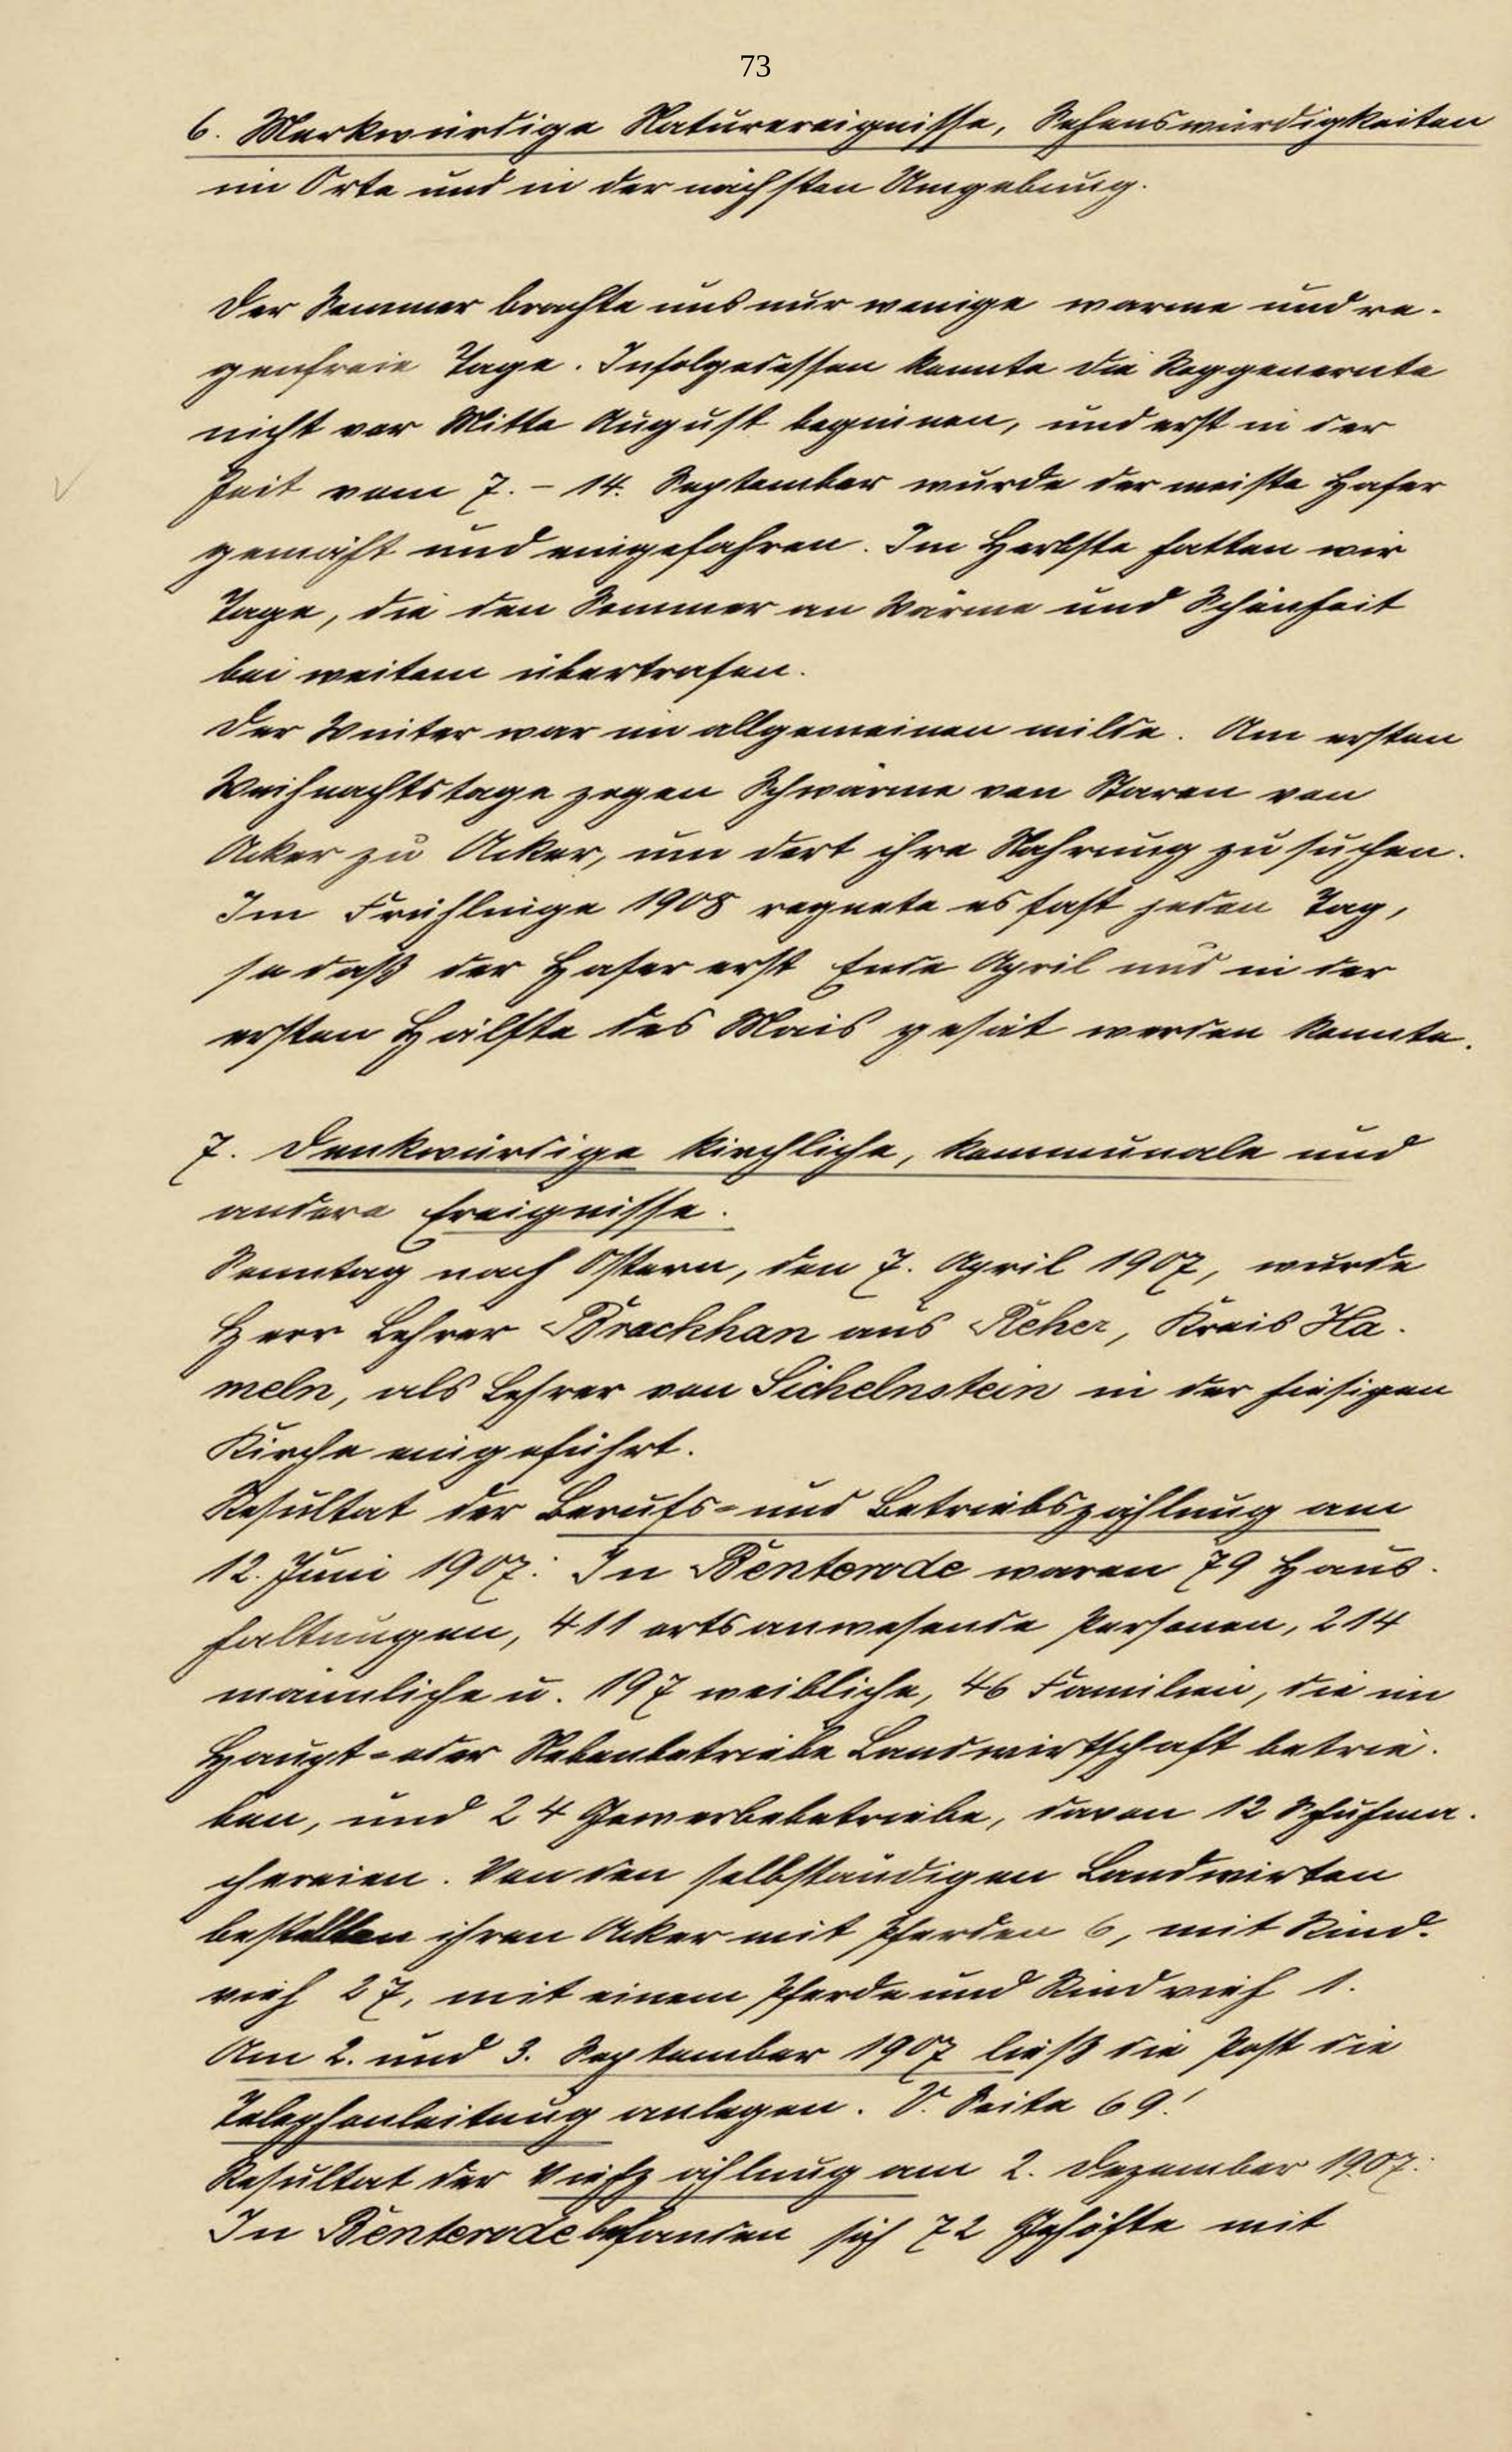 73
6. Merkwürdige Naturereignisse, Sehenswürdigkeiten
im Orte und in der nächsten Umgebung.
Der Sommer brachte uns nur wenige warme und re-
genfreie Tage. Infolgedessen konnte die Roggenernte
nicht vor Mitte August beginnen, und erst in der
Zeit vom 7. - 14. September wurde der meiste Hafer
gemäht und eingefahren. Im Herbste hatten wir
Tage, die den Sommer an Wärme und Schönheit
bei weitem übertrafen.
Der Winter war im allgemeinen milde. Am ersten
Weihnachtstage zogen Schwärme von Staren von
Acker zu Acker, um dort ihre Nahrung zu suchen.
Im Frühlinge 1908 regnete es fast jeden Tag,
so daß der Hafer erst Ende April und in der
ersten Hälfte des Mais gesät werden konnte.
7. Denkwürdige kirchliche, kommunale und
andere Ereignisse.
Sonntag nach Ostern, den 7. April 1907, wurde
Herr Lehrer Brackhan aus Reher, Kreis Ha-
meln, als Lehrer von Sichelnstein in der hiesigen
Kirche eingeführt.
Resultat der Berufs- und Betriebszählung am
12. Juni 1907: In Benterode waren 79 Haus-
haltungen, 411 ortsanwesende Personen, 214
männliche u. 197 weibliche, 46 Familien, die im
Haupt- oder Nebenbetriebe Landwirtschaft betrie-
ben, und 24 Gewerbebetriebe, davon 12 Schuhma-
chereien. Von den selbständigen Landwirten
bestellten ihren Acker mit Pferden 6, mit Rind-
vieh 27, mit einem Pferde und Rindvieh 1.
Am 2. und 3. September 1907 ließ die Post die
Telephonleitung anlegen. V. Seite 69!
Resultat der Viehzählung am 2. Dezember 1907:
In Benterode befanden sich 72 Gehöfte mit